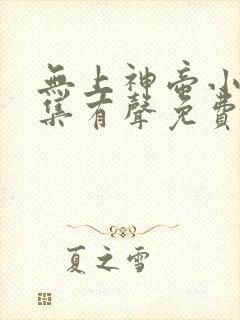 無上神帝小
集有聲免費
夏之雪